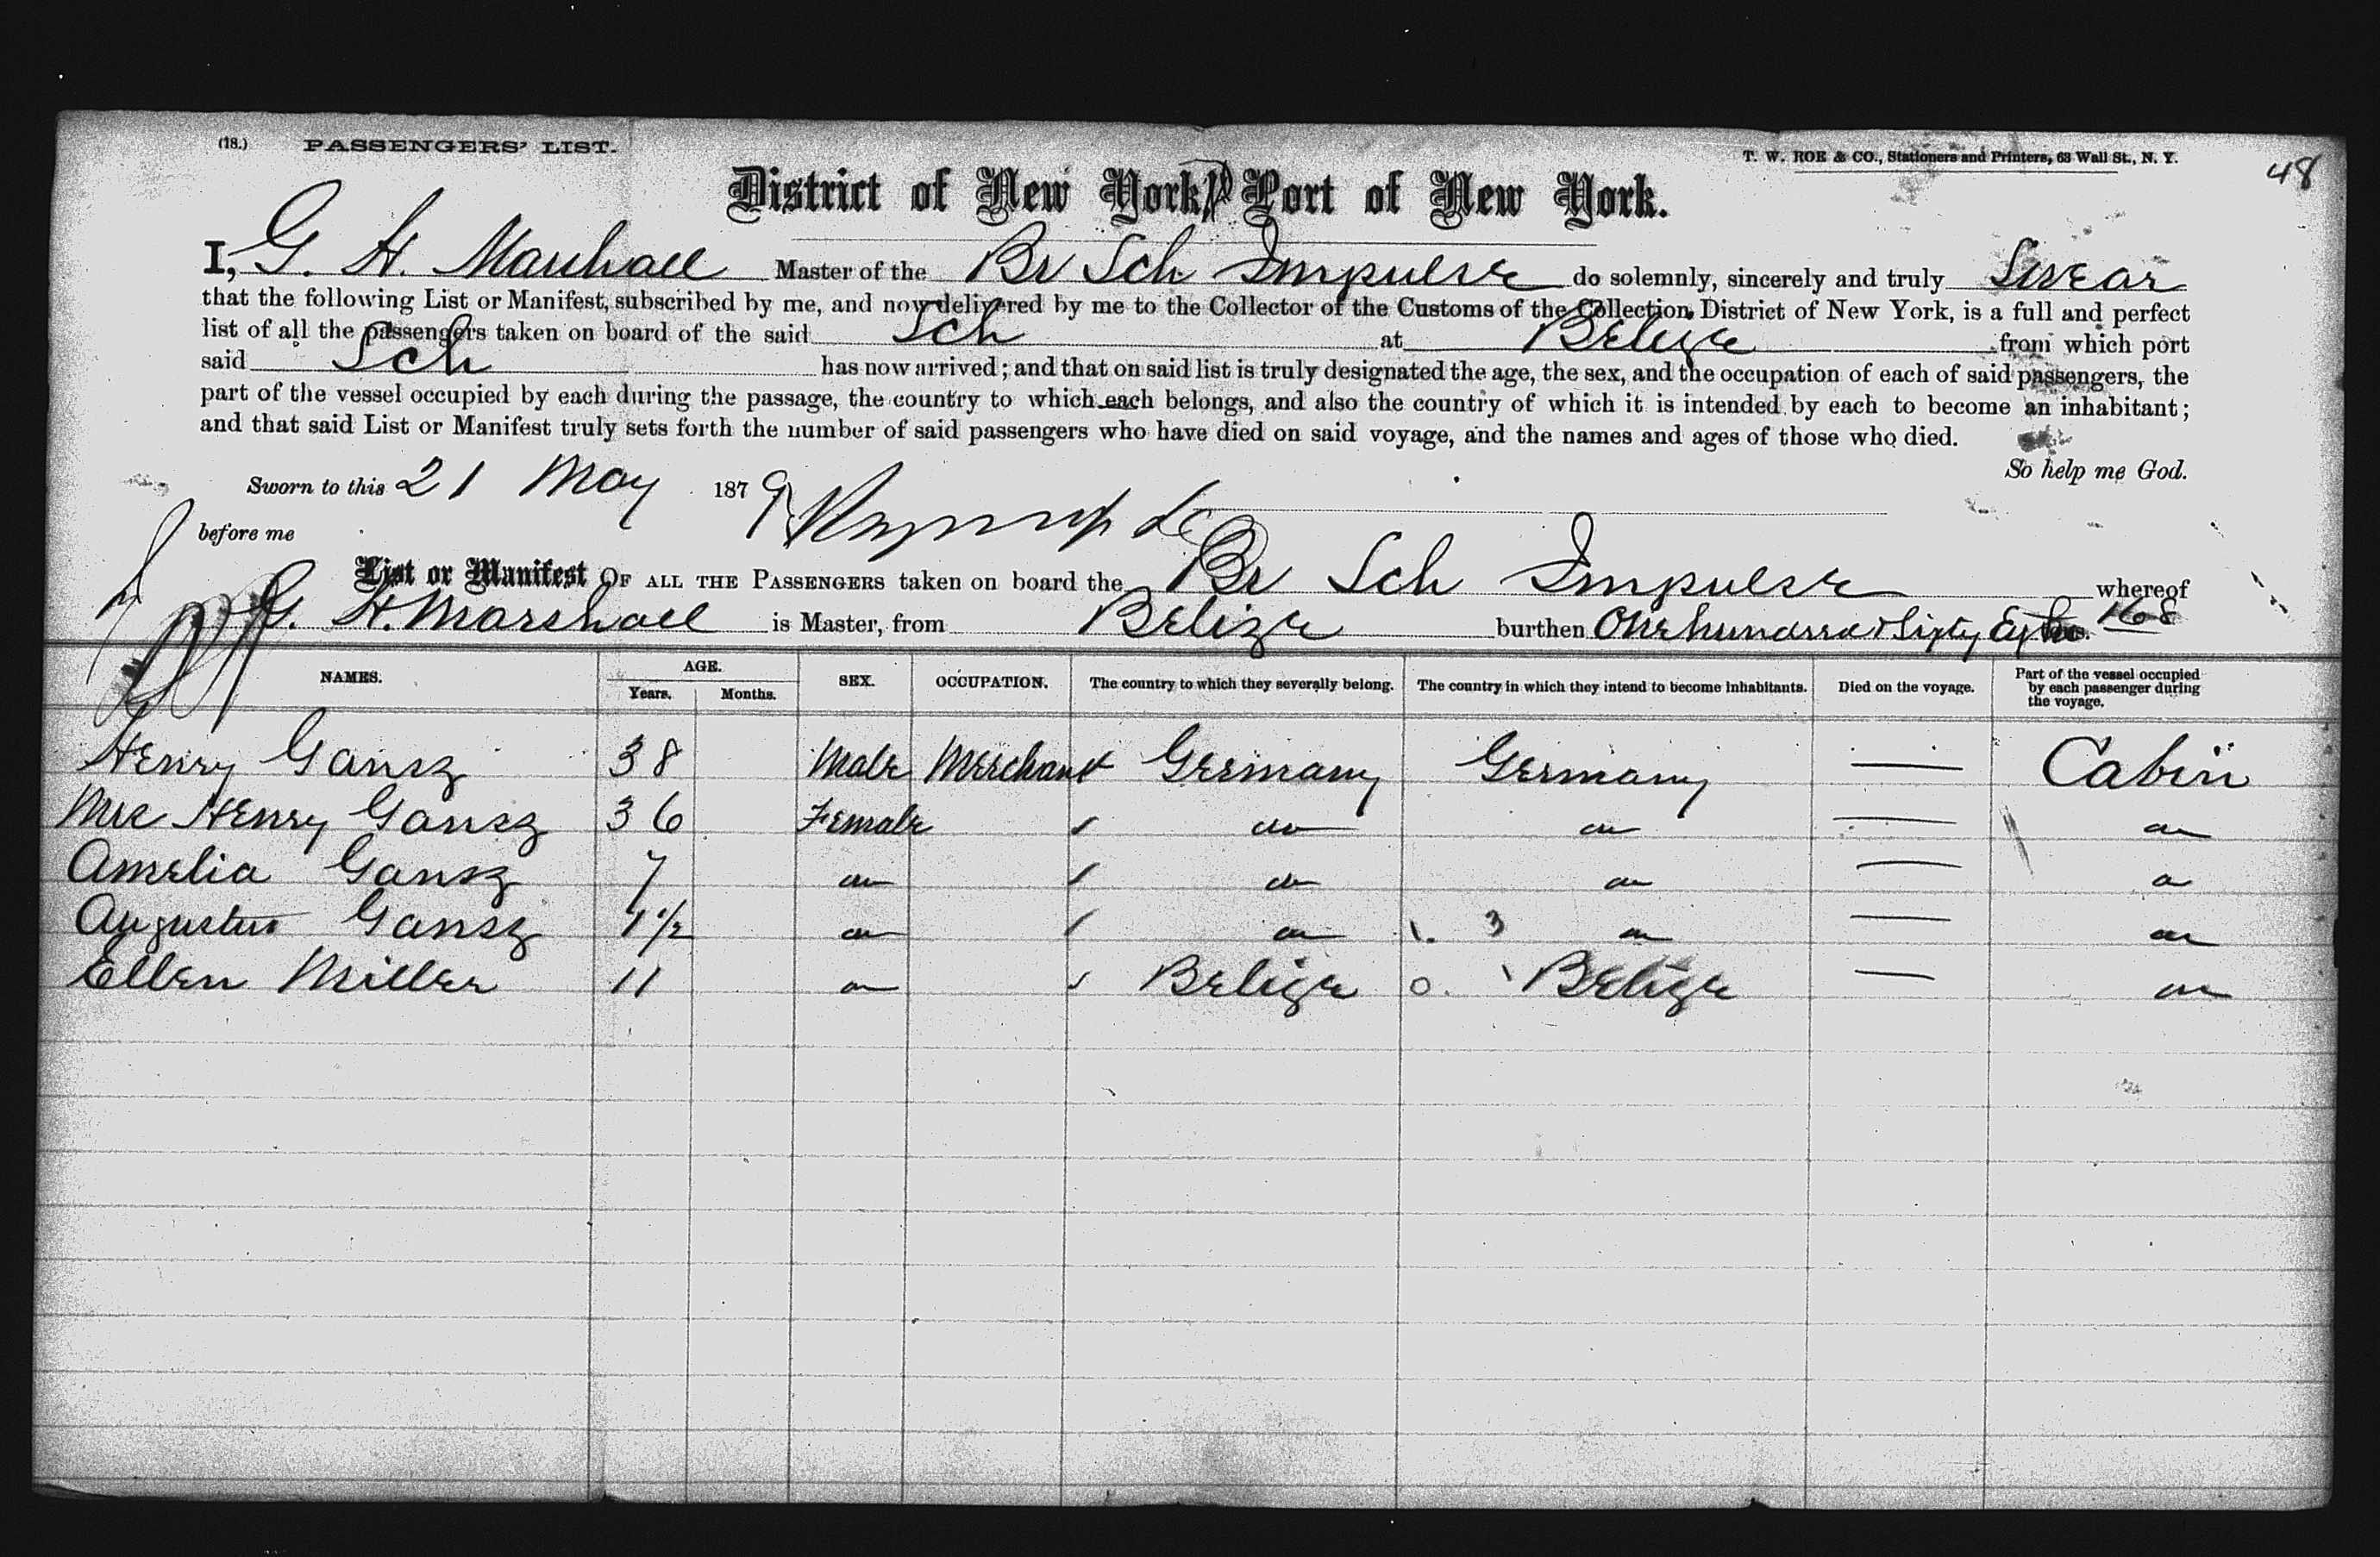 (18.) PASSENGERS' LIST.
T. W. ROE & CO., Stationers and Printers, 63 Wall St., N. Y.
48
District of New York, Port of New York.
I, G. H. Marshall Master of the Br Sch Impulse do solemnly, sincerely and truly Swear
that the following List or Manifest, subscribed by me, and now delivered by me to the Collector of the Customs of the Collection District of New York, is a full and perfect
list of all the passengers taken on board of the said Sch at Belize from which port
said Sch has now arrived; and that on said list is truly designated the age, the sex, and the occupation of each of said passengers, the
part of the vessel occupied by each during the passage, the country to which each belongs, and also the country of which it is intended by each to become an inhabitant;
and that said List or Manifest truly sets forth the number of said passengers who have died on said voyage, and the names and ages of those who died.
So help me God.
Sworn to this 21 May 1879
before me
List or Manifest OF ALL THE PASSENGERS taken on board the Br Sch Impulse whereof
G. H. Marshall is Master, from Belize burthen One hundred & Sixty 168
NAMES. AGE. Years. Months. SEX. OCCUPATION. The country to which they severally belong. The country in which they intend to become inhabitants. Died on the voyage. Part of the vessel occupied by each passenger during the voyage.
Henry Gansz 38 Male Merchant Germany Germany — Cabin
Mrs Henry Gansz 36 Female do do — do
Amelia Gansz 7 do do do — do
Augustus Gansz 1 1/2 do do do — do
Ellen Miller 11 do Belize Belize — do